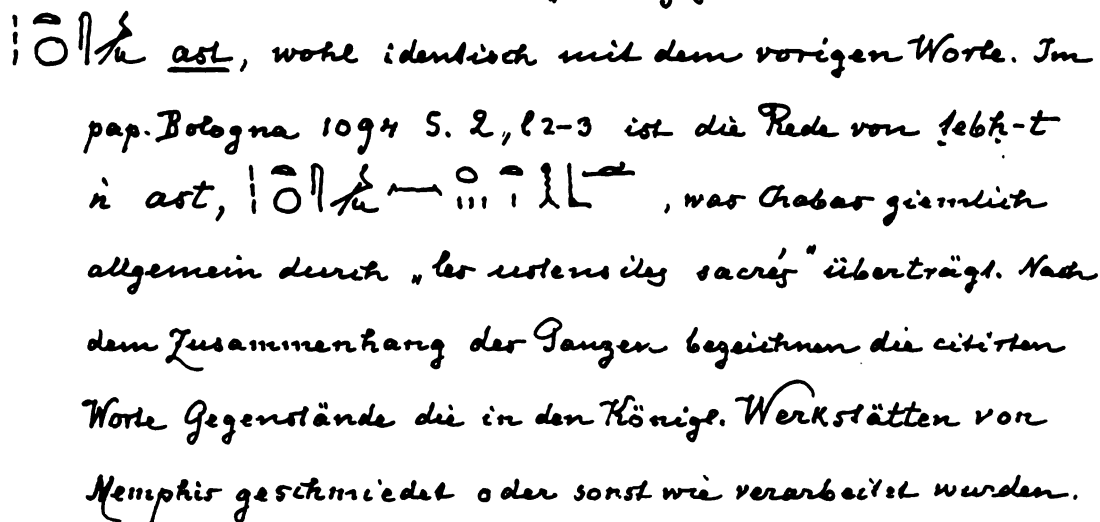 ast, wohl identisch mit dem vorigen Worte. Im
pap. Bologna 1094 S. 2, l 2-3 ist die Rede von ṭebḥ-t
n ast, , was Chabas ziemlich
allgemein durch „les ustensiles sacrés" überträgt. Nach
dem Zusammenhang des Ganzen bezeichnen die citirten
Worte Gegenstände die in den Königl. Werkstätten von
Memphis geschmiedet oder sonst wie verarbeitet wurden.